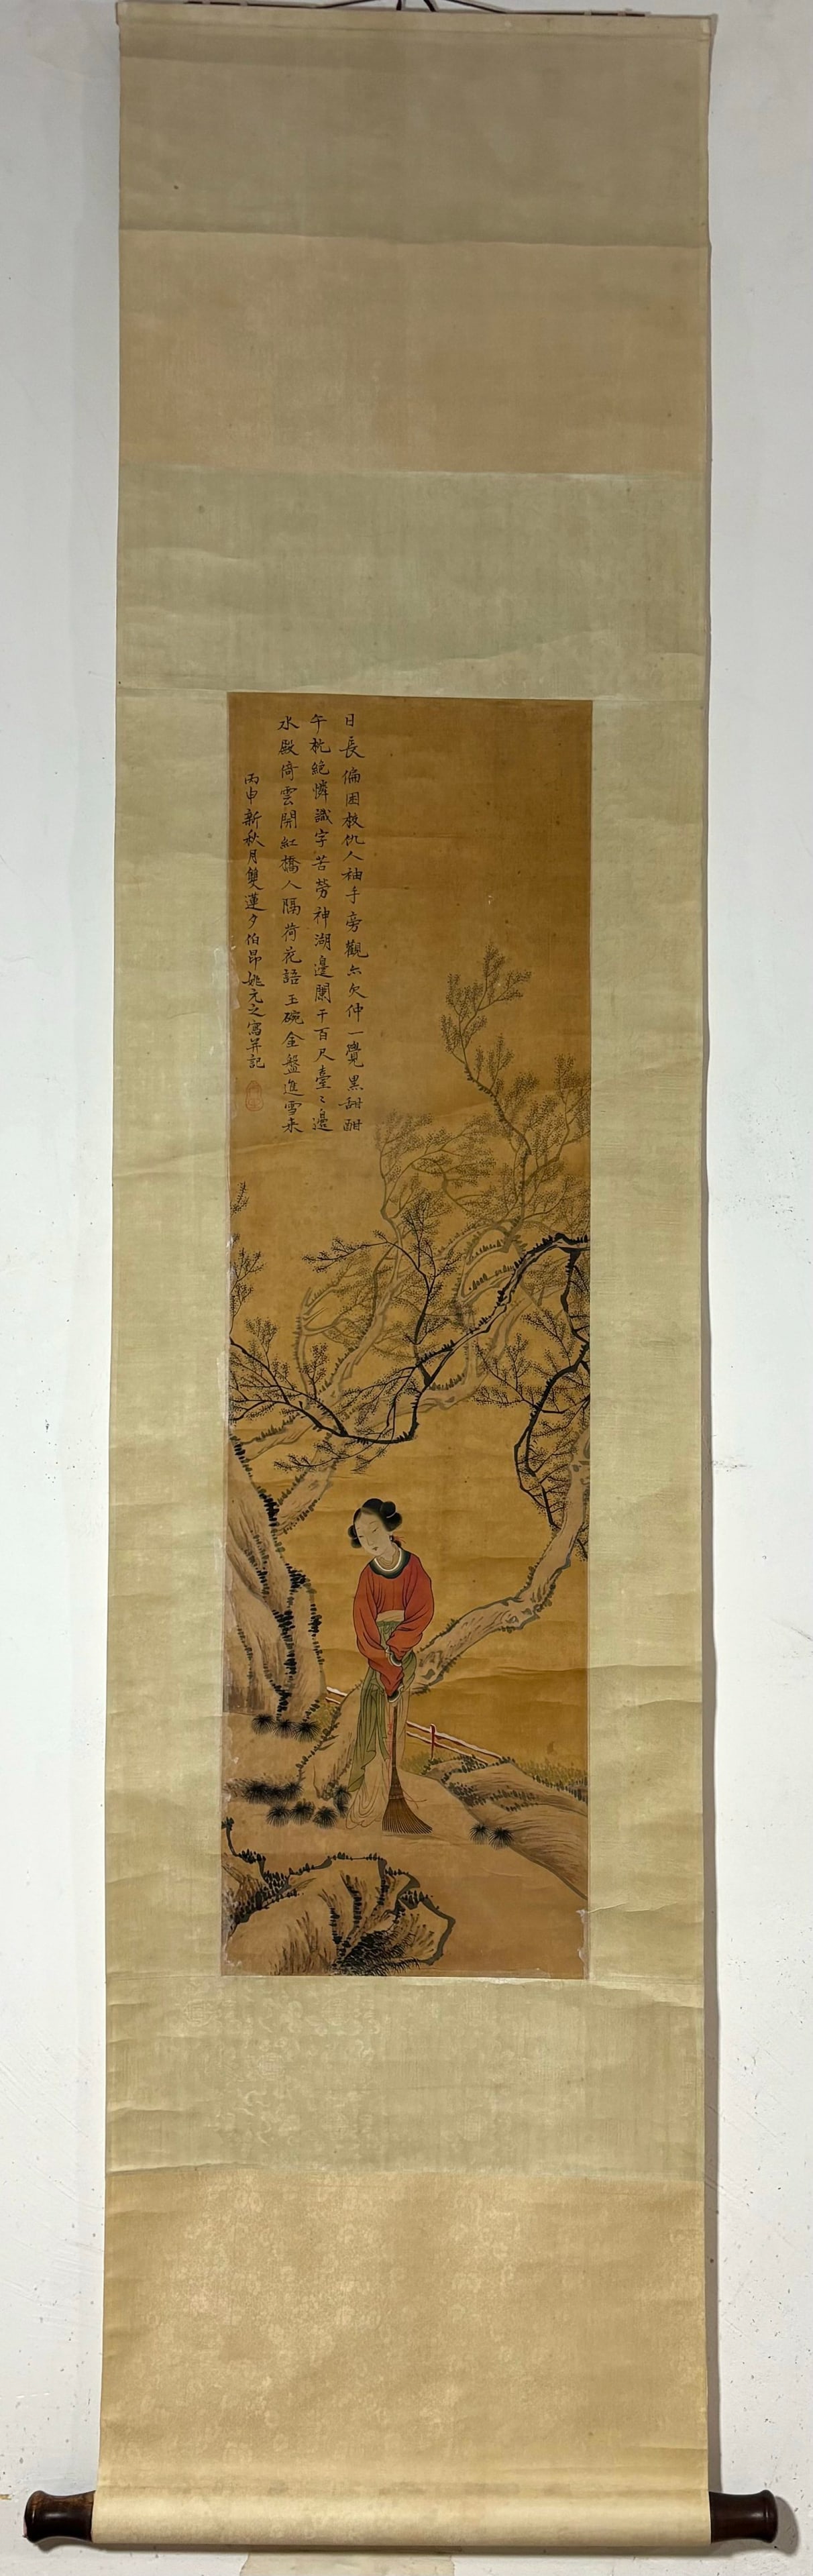 日長偏困校仇人袖手旁觀亦欠伸一覺黑甜酣
午枕絕憐識字苦勞神湖邊闌干百尺臺〻邊
水殿倚雲開紅橋人隔荷花語玉碗金盤進雪來
丙申新秋月雙蓮夕伯昂姚元之寫并記